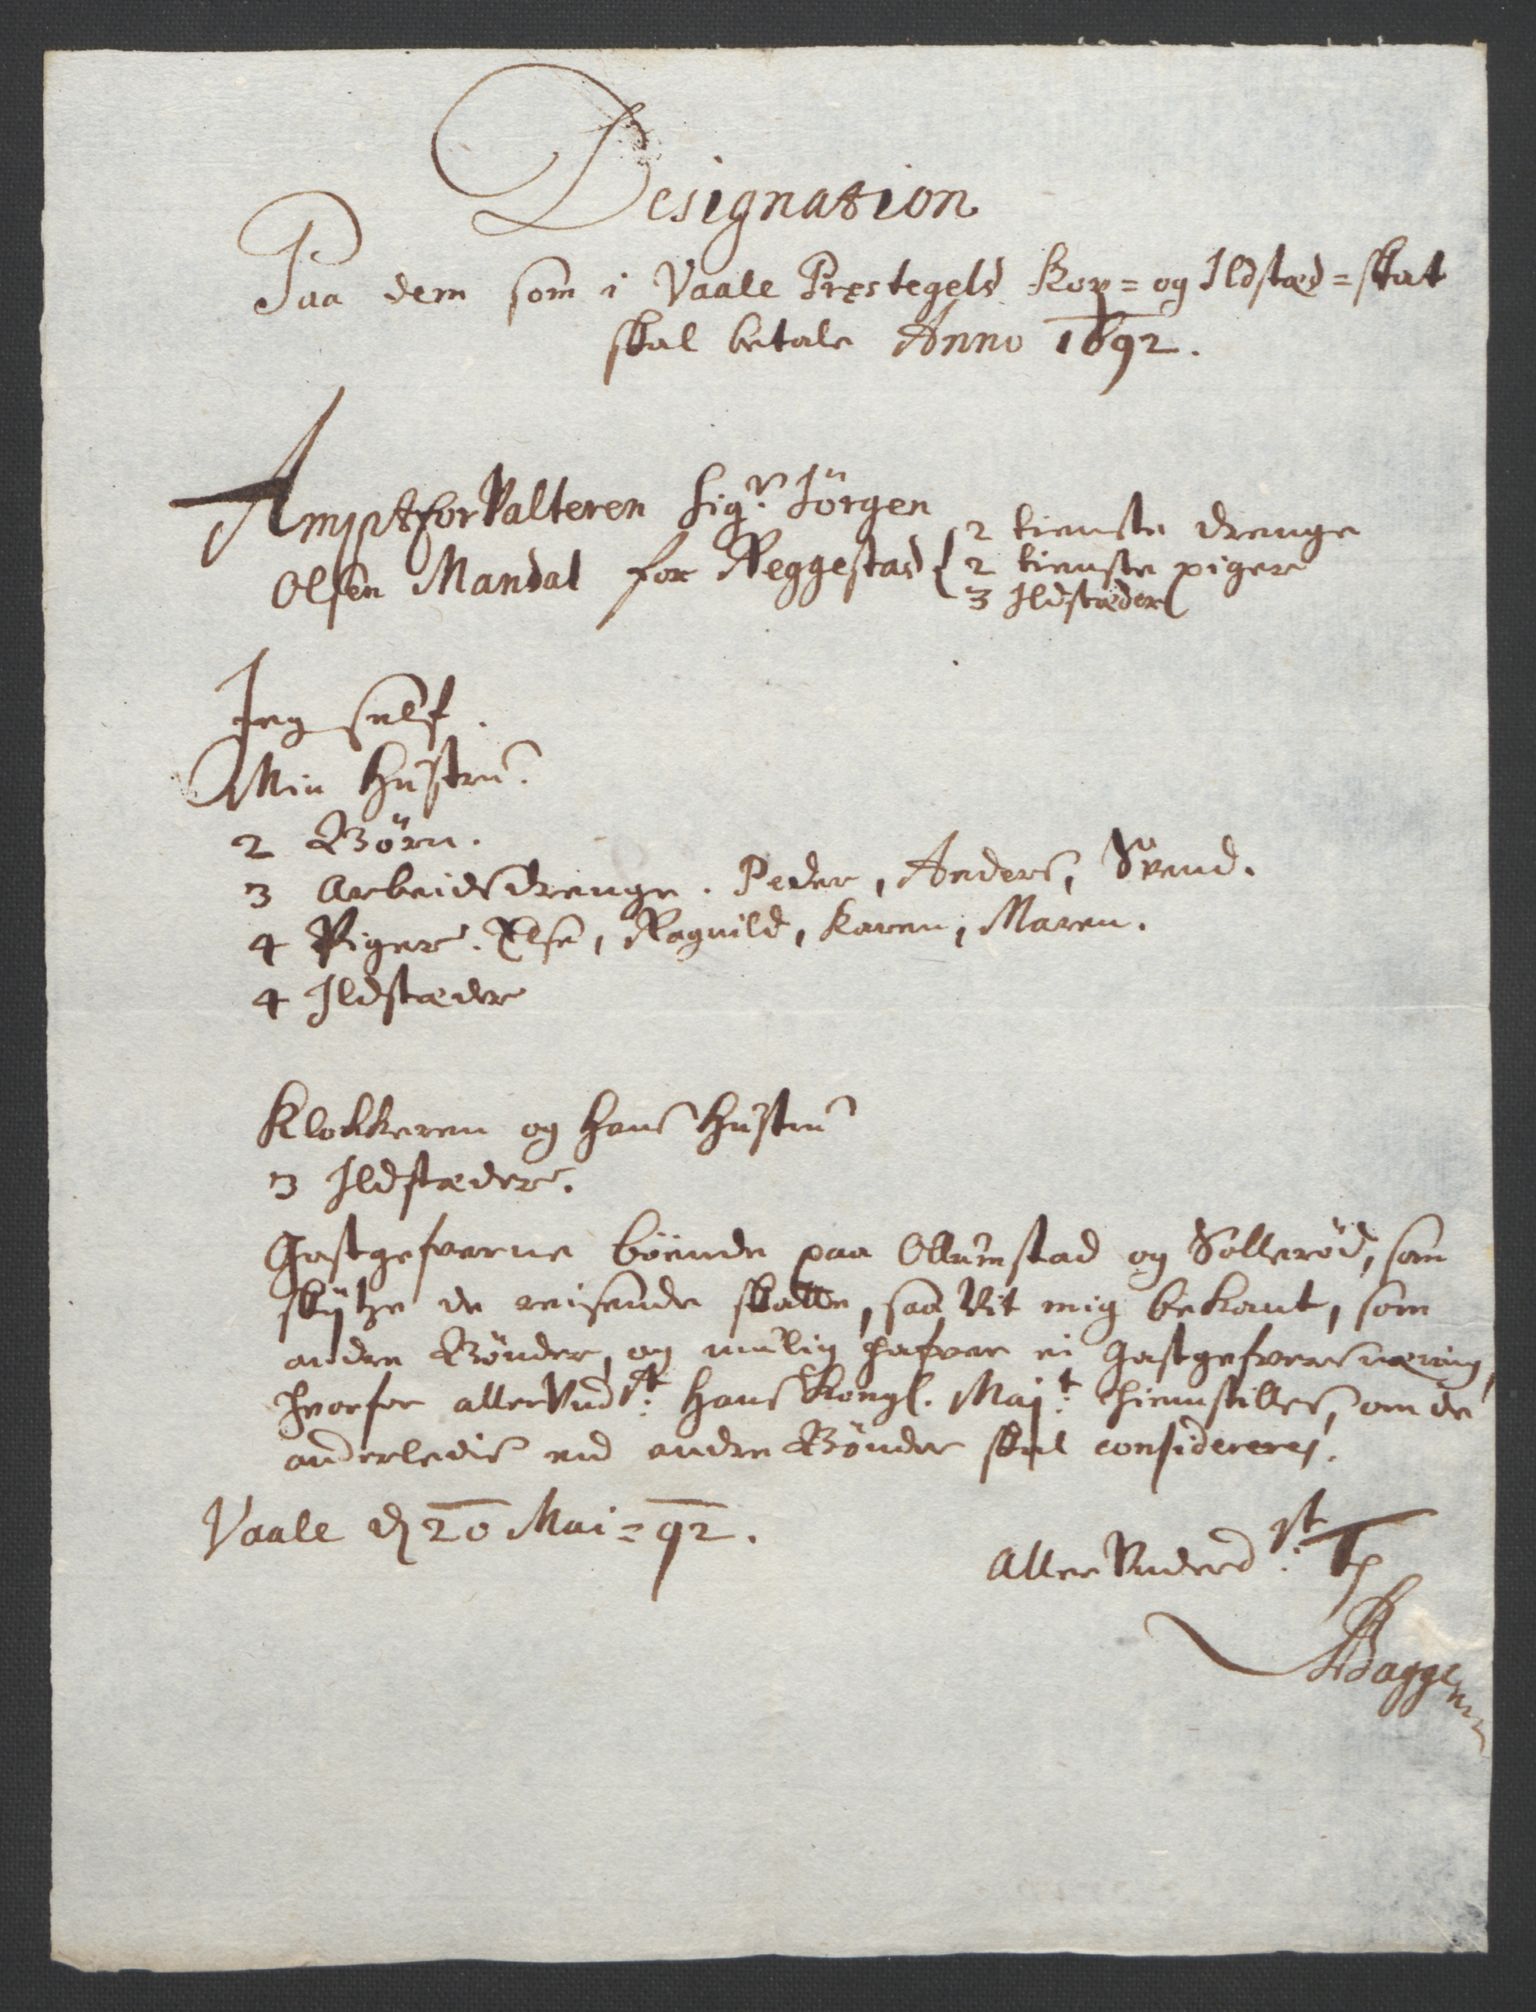 Designation
Paa dem som i Vaale Prestegeld Kop= og Ildstæd=skat
skal betale Anno 1692.
Amptforvalteren Sigr. Jörgen
Olsen Mandal for Reggestad { 2 tieneste drenge
2 tieneste piger
3 Ildstæder
Jeg self.
Min Hustru.
2 Börn.
3 Arbeidsdrenge. Peder, Anders, Svend.
4 Piger. Else, Ragnild, Karen, Maren.
4 Ildstæder
Klokkeren og hans Hustru
3 Ildstæder.
Gastgefverne böende paa Ollumstad og Solleröd, som
skÿtze de reisende skatte, saa vit mig bekant, som
andre Bönder, og mulig hafver ei Gastgefversnæring,
hvorfor allerundst. Hans Kongl. Majt. hiemstilles, om de
anderledis end andre Bönder skal considereres.
Vaale d 20 Mai = 92.
Allerunderdst.
Baggesen